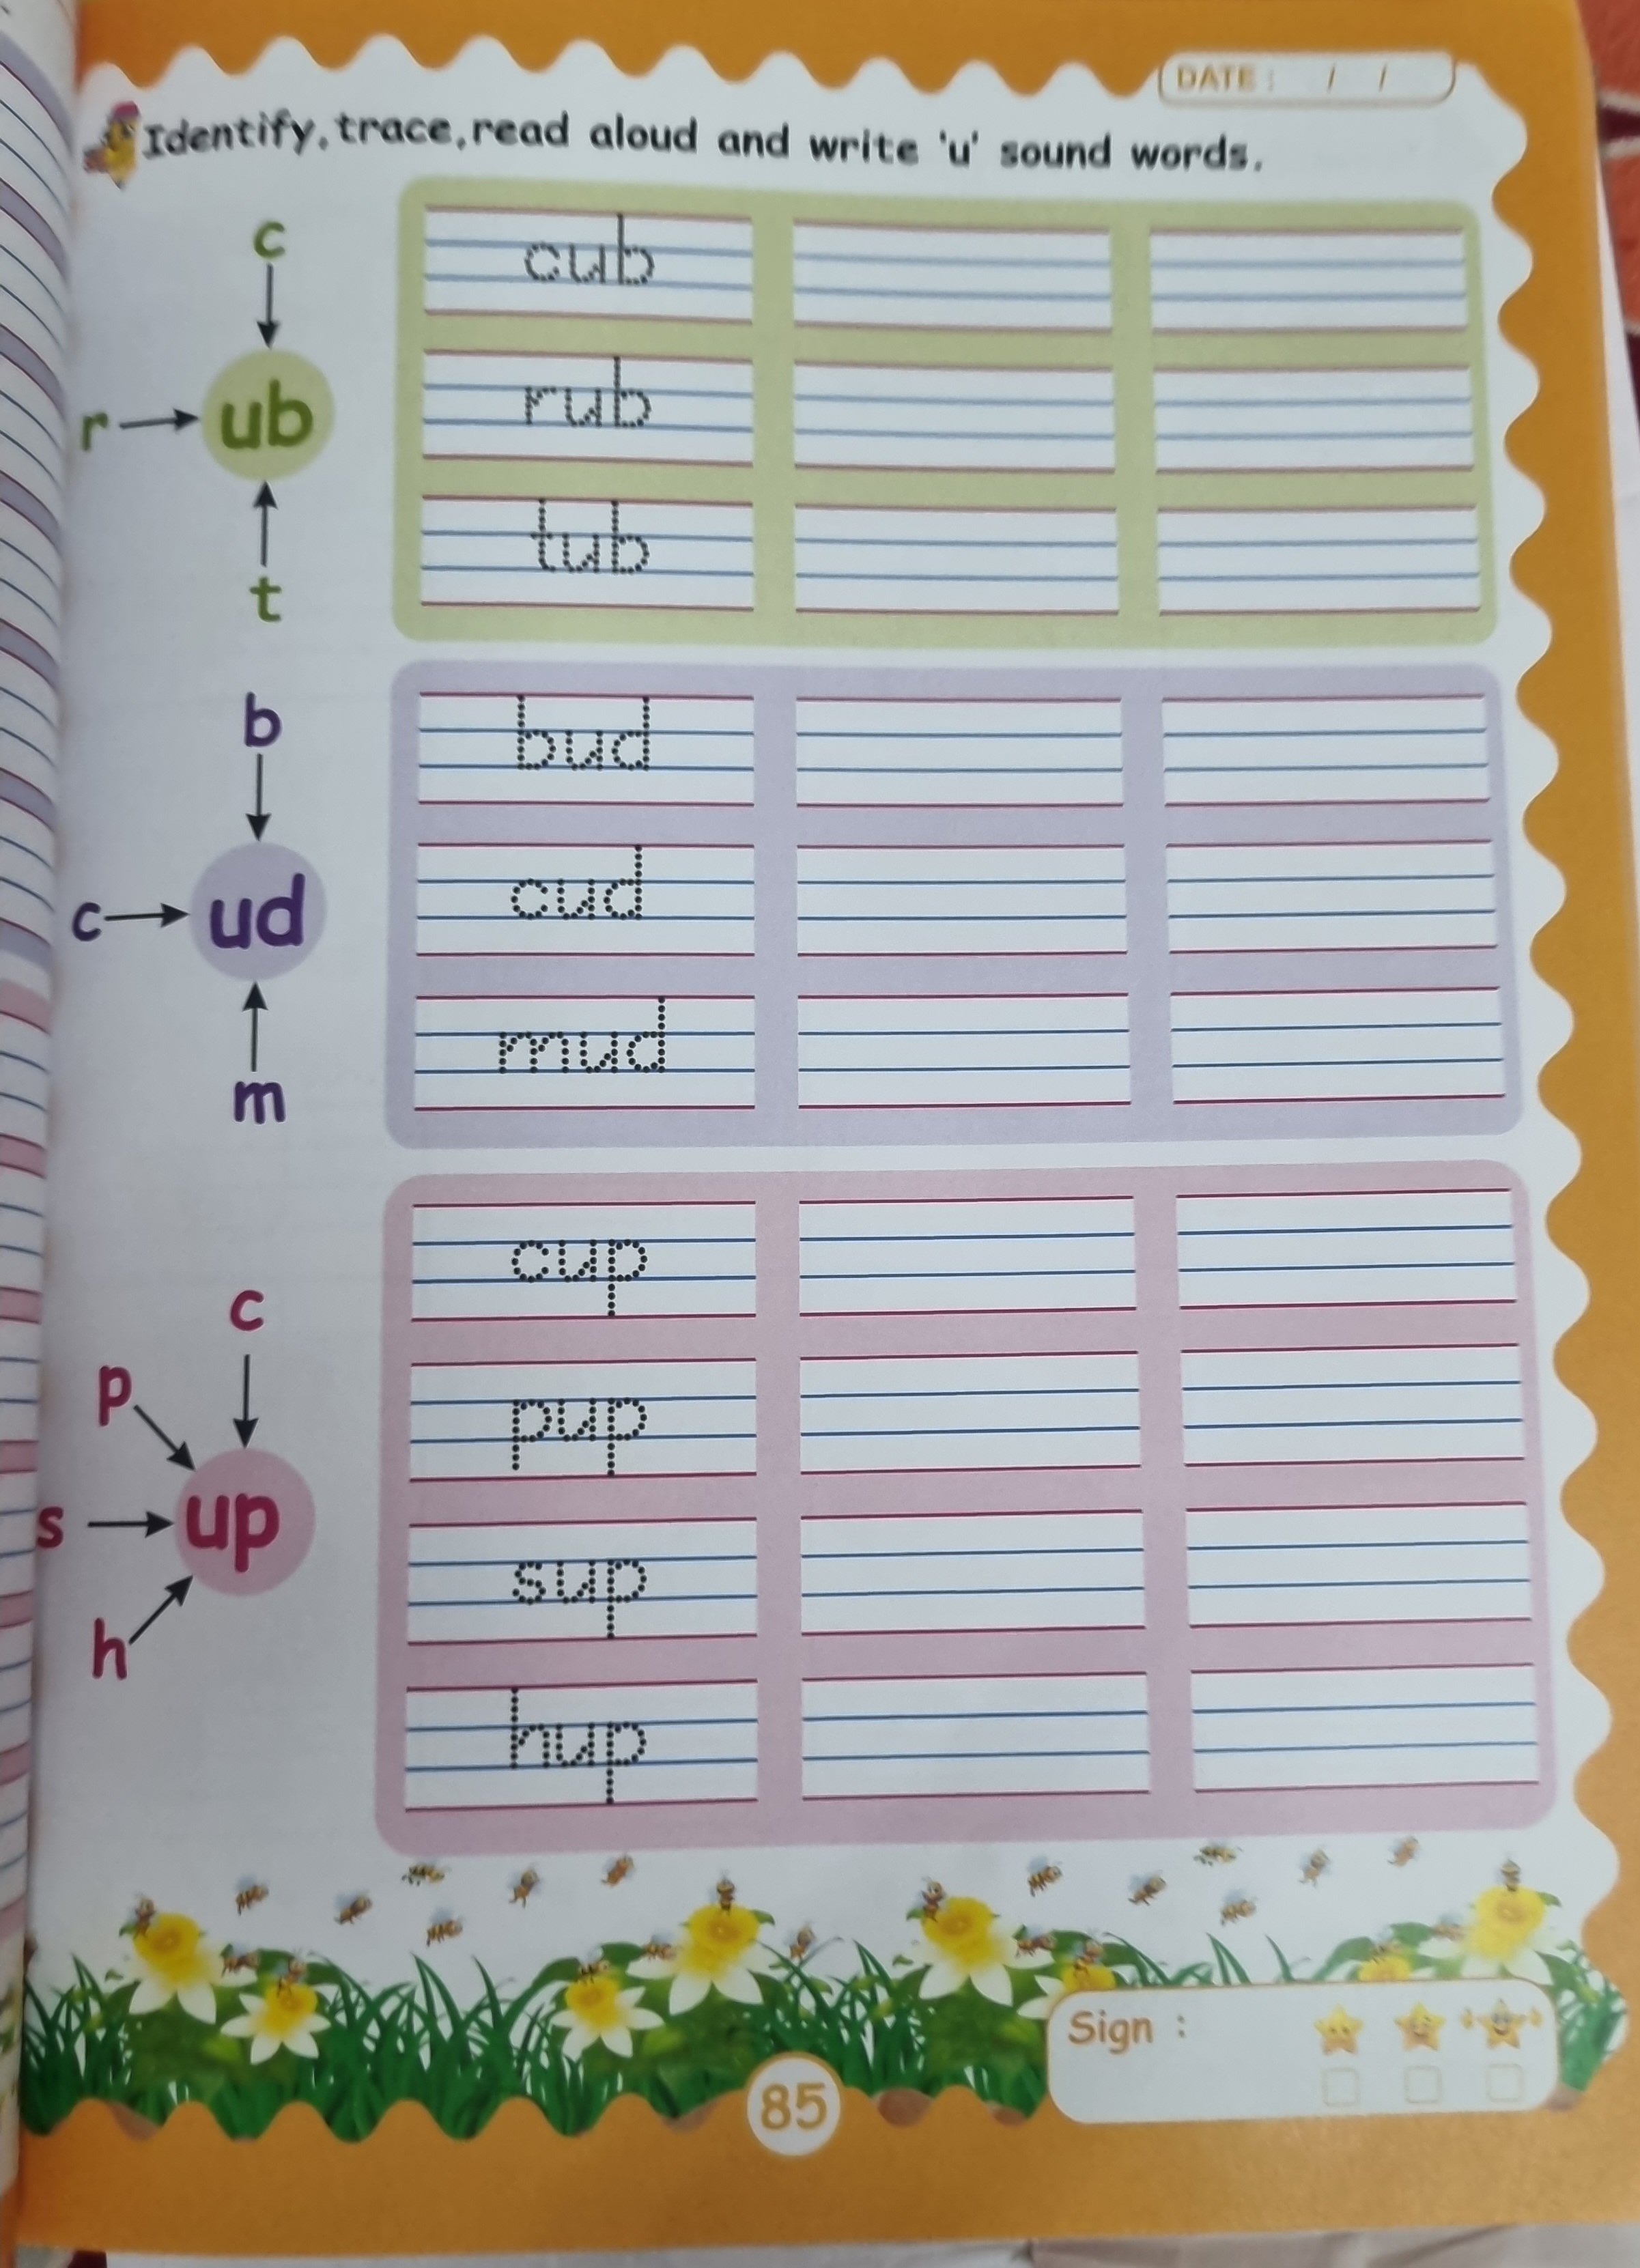 DATE : / /
Identify, trace, read aloud and write 'u' sound words.
c
r
ub
t
cub
rub
tub
b
c
ud
m
bud
cud
mud
c
p
s
up
h
cup
pup
sup
hup
Sign :
85